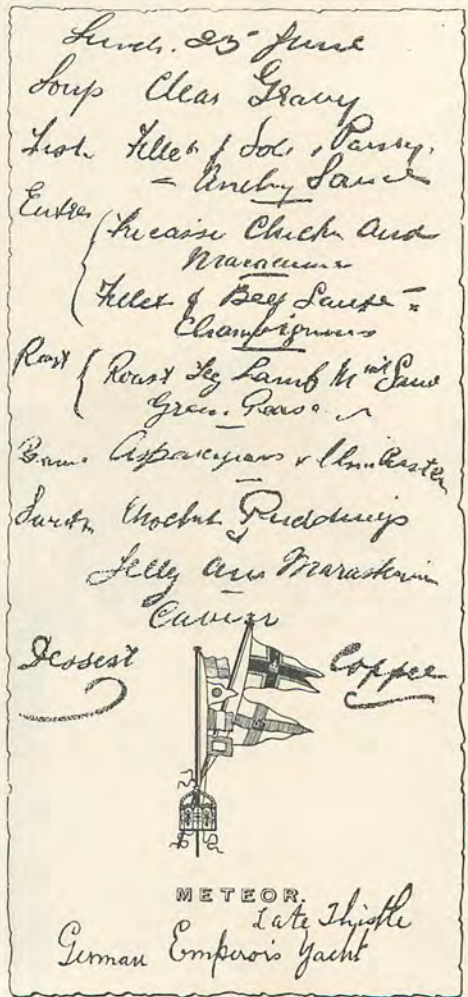 Lunch. 25 June
Soup Clear Gravy
Fish Fillet of Sole Parsley.
= Anchy Sauce
Entrees
Fricasse Chicken and
Fillet of Beef Sauté =
Champignons
Roast
Roast Leg Lamb Mint Sauce
Green Pease
Asparagus &
Sweets Puddings
Jelly au Maraschino
Caviar
Dessert Coffee
METEOR.
Late Thistle
German Emperor's Yacht